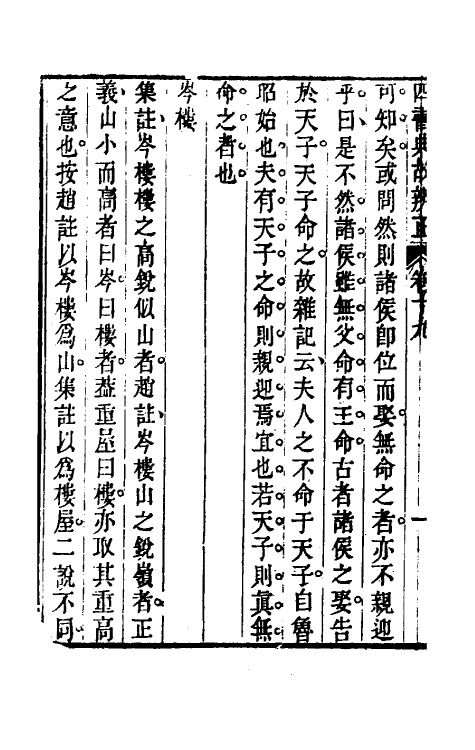 四書典故辨正 卷十九 一
可知矣或問然則諸侯卽位而娶無命之者亦不親迎
乎曰是不然諸侯雖無父命有王命古者諸侯之娶告
於天子天子命之故雜記云夫人之不命于天子自魯
昭始也夫有天子之命則親迎焉宜也若天子則眞無
命之者也
岑樓
集註岑樓樓之高銳似山者趙註岑樓山之銳嶺者正
義山小而高者曰岑曰樓者葢重屋曰樓亦取其重高
之意也按趙註以岑樓爲山集註以爲樓屋二說不同